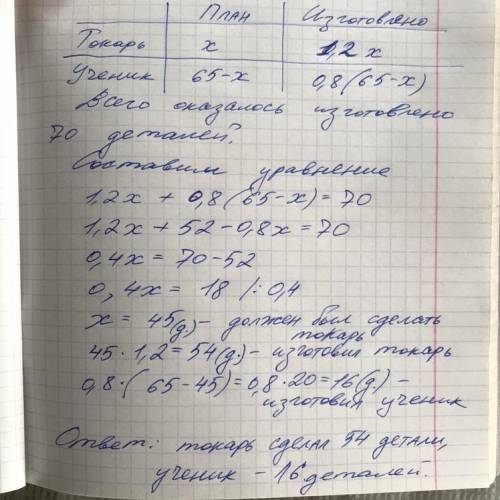 План Изготовлено
Токарь x 1,2x
Ученик 65-x 0,8(65-x)
Всего оказалось изготовлено
70 деталей.
Составим уравнение
1,2x + 0,8(65-x)=70
1,2x + 52-0,8x=70
0,4x = 70-52
0,4x = 18 /:0,4
x = 45(д)- должен был сделать
токарь
45·1,2=54(д.)- изготовил токарь
0,8·(65-45)=0,8·20=16(д)-
изготовил ученик
Ответ: токарь сделал 54 детали,
ученик - 16 деталей.